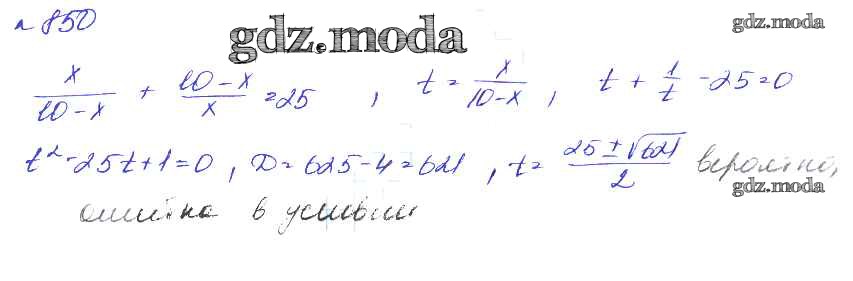 № 850
gdz.moda
gdz.moda
x/(10-x) + (10-x)/x = 25 , t = x/(10-x) , t + 1/t - 25 = 0
t² - 25t + 1 = 0 , D = 625 - 4 = 621 , t = (25 ± √621)/2 вероятно,
gdz.moda
ошибка в условии